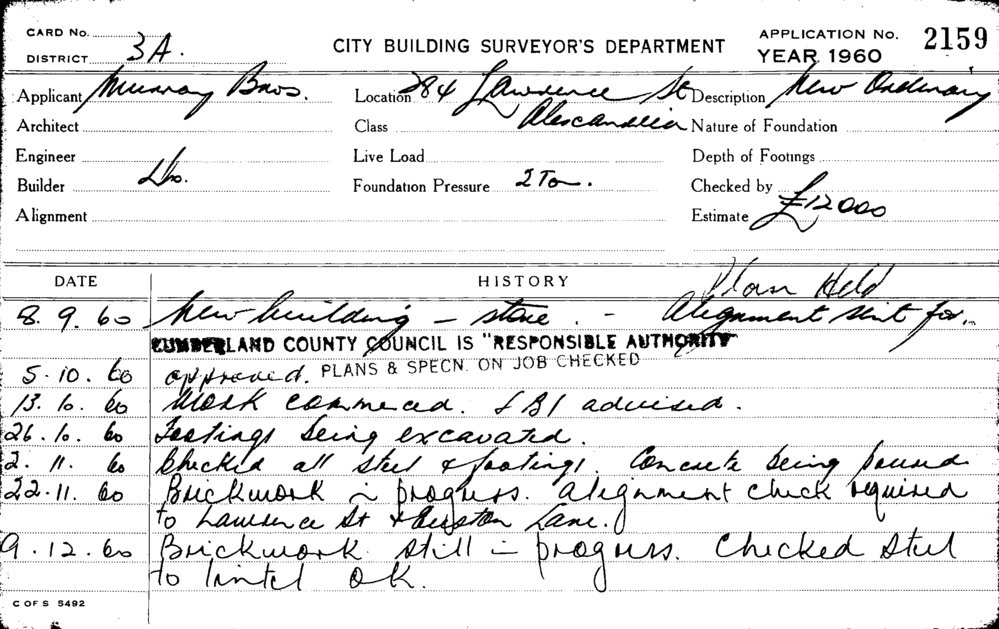 CARD No.
DISTRICT 3A.
CITY BUILDING SURVEYOR'S DEPARTMENT
APPLICATION No. 2159
YEAR 1960
Applicant Murray Bros. Location 284 Lawrence St Description New Ordinary
Architect Class Alexandria Nature of Foundation
Engineer Live Load Depth of Footings
Builder Do. Foundation Pressure 2 Ton. Checked by
Alignment Estimate £12000
DATE HISTORY Plan Held
8. 9. 60 New building - store. - Alignment sent for.
CUMBERLAND COUNTY COUNCIL IS "RESPONSIBLE AUTHORITY"
5. 10. 60 approved. PLANS & SPECN. ON JOB CHECKED
13. 10. 60 Work commenced. LBI advised.
26. 10. 60 Footings being excavated.
2. 11. 60 Checked all steel & footings. Concrete being poured
22. 11. 60 Brickwork in progress. Alignment check required
to Lawrence St & Lane.
9. 12. 60 Brickwork still in progress. Checked steel
to lintel OK.
C OF S 5492